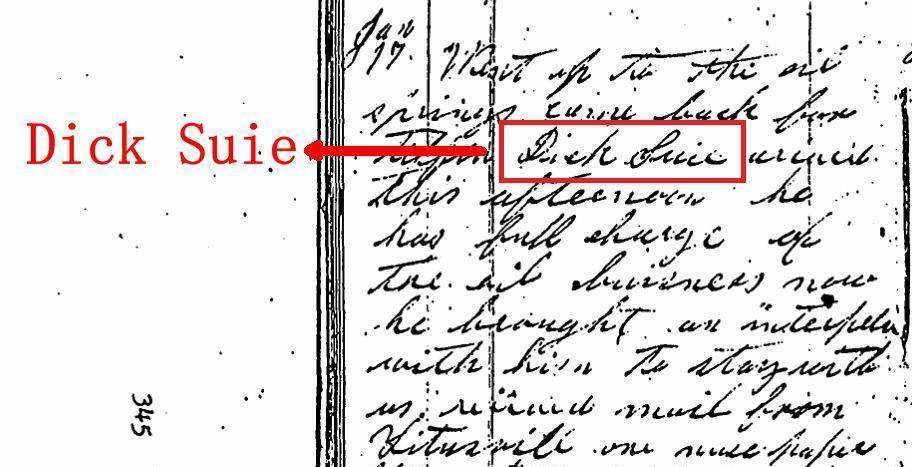 Jan
17. Went up to the oil
springs came back for
Dick Suie
Dick Suie arrived
this afternoon he
has full charge of
the oil buisness now
he brought an
with him to stay with
us recived mail from
Titusville one
345